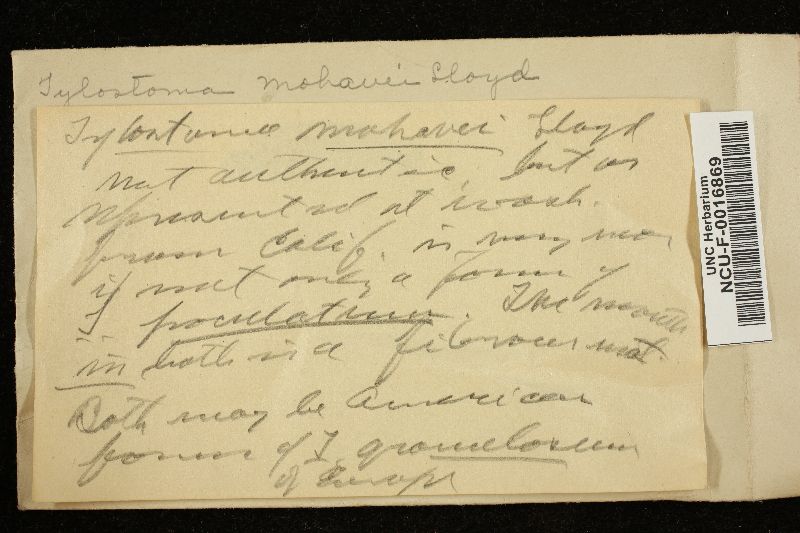 Tylostoma mohavei Lloyd
Tylostoma mohavei Lloyd
not authentic, but as
represented at Wash.
from Calif. is very near
if not only a form of
T. poculatum. The mouth
in both is a fibrous mat.
Both may be American
forms of T. granulosum
of Europe
UNC Herbarium
NCU-F-0016869